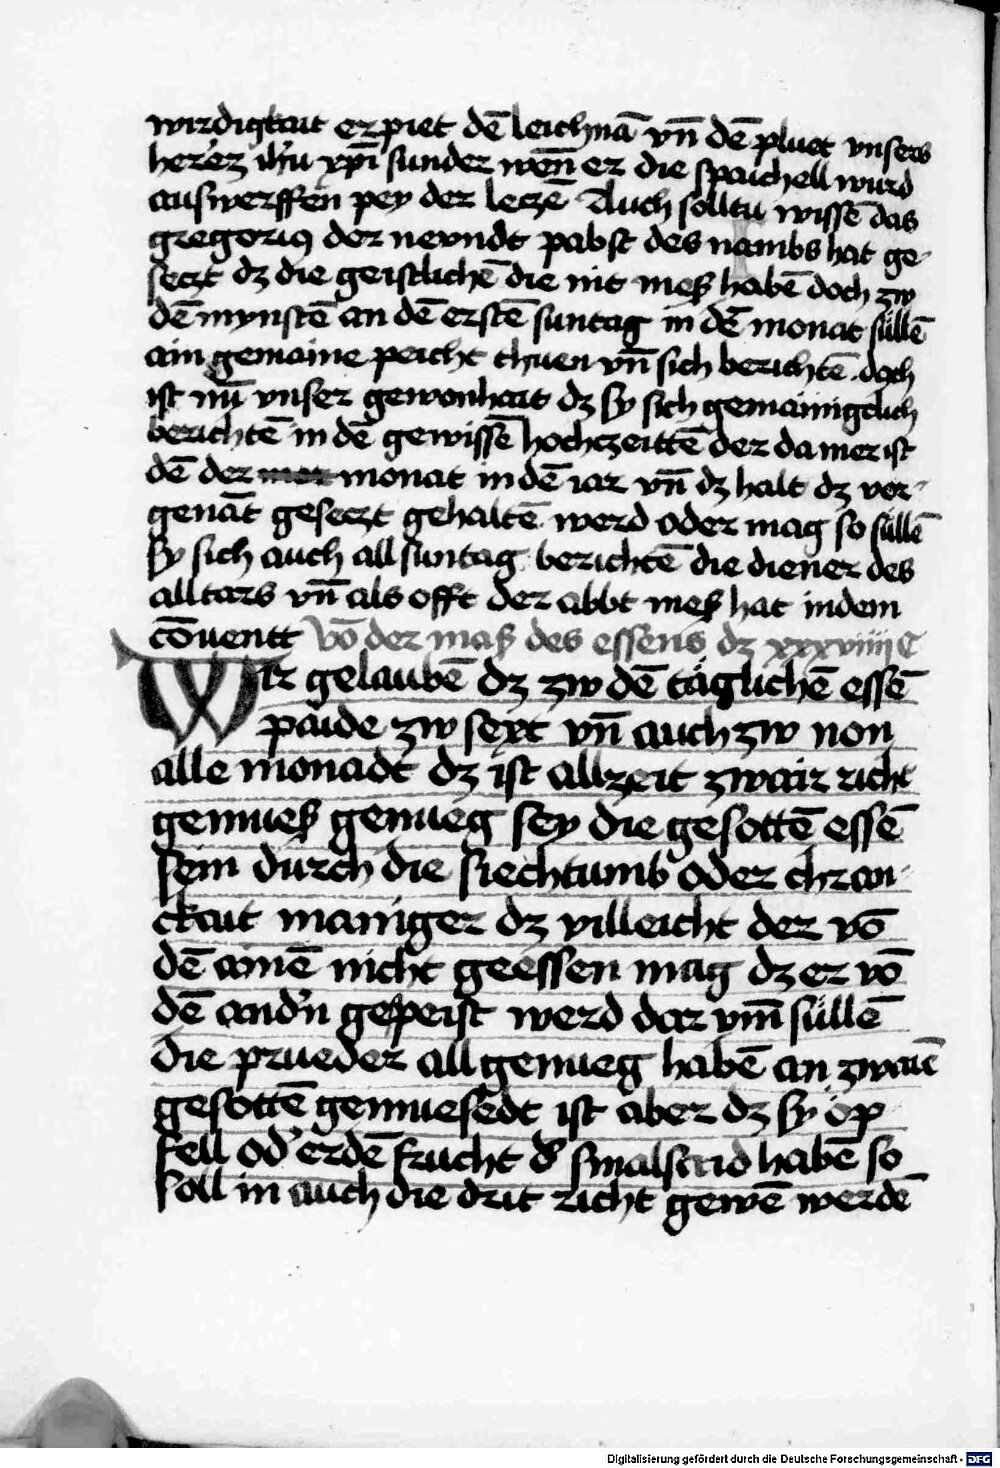 wirdigkait erpiet dē leichnā vn̄ dē pluet vnsers
herrez ihū xp̄i sunder wen̄ er die spaichell wurd
auswerffen pey der leczē Auch solltu wissē das
gregoriꝯ der neundt pabst des nambs hat ge-
seczt dz die geistlichē die nit meß habē doch zw
dē mynstē an dē erstē suntag in dē monat süllē
ain gemaine peicht thuen vn̄ sich berichtē doch
ist nū vnser gewonhait dz sy sich gemainigclich
berichtē in dē gewissē hochczeittē der da mer ist
dē der mer monat in dē iar vn̄ dz halt dz vor-
genāt geseczt gehaltē werd oder mag so süllē
sy sich auch all suntag berichtē die diener des
alltars vn̄ als offt der abbt meß hat in dem
cōuentt Vō der maß des essens dz xxxviiii C
Wir gelaubē dz zw dē täglichē essē
paide zw sext vn̄ auch zw non
alle monadt dz ist allzeit zwair richt
gemueß genueg sey die gesottē essē
sein durch die siechtumb oder chran-
ckait maniger dz villeicht der vō
dē ainē nicht geessen mag dz er vō
dē and'n gespeist werd dar vm̄ süllē
die prueder all genueg habē an zwaiē
gesottē gemuesedt ist aber dz sy öp-
fell od' erdē frucht d' smalsaid habē so
soll in auch die drit richt gewē werdē
Digitalisierung gefördert durch die Deutsche Forschungsgemeinschaft - DFG